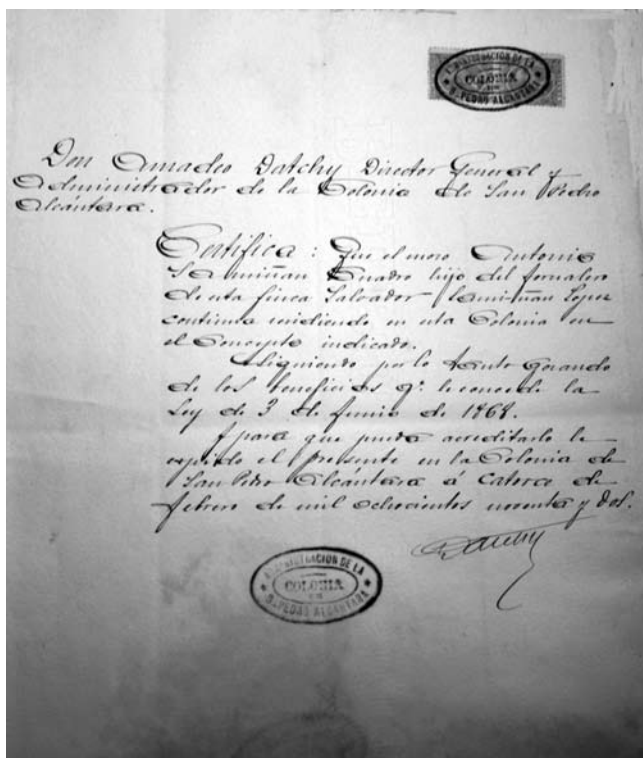 ADMINISTRACION DE LA
COLONIA
DE
S. PEDRO ALCANTARA
Don Amadeo Datchy Director General y
Administrador de la Colonia de San Pedro
Alcántara.
Certifica: Que el mozo Antonio
Semiñan Cuadro hijo del jornalero
de esta finca Salvador Semiñan Lopez
continua residiendo en esta Colonia en
el Concepto indicado.
Siguiendo por lo tanto Gozando
de los beneficios q.e le concede la
Ley de 3 de Junio de 1868.
Y para que pueda acreditarlo le
expido el presente en la Colonia de
San Pedro Alcántara á Catorce de
febrero de mil ochocientos noventa y dos.
Datchy
ADMINISTRACION DE LA
COLONIA
DE
S. PEDRO ALCANTARA